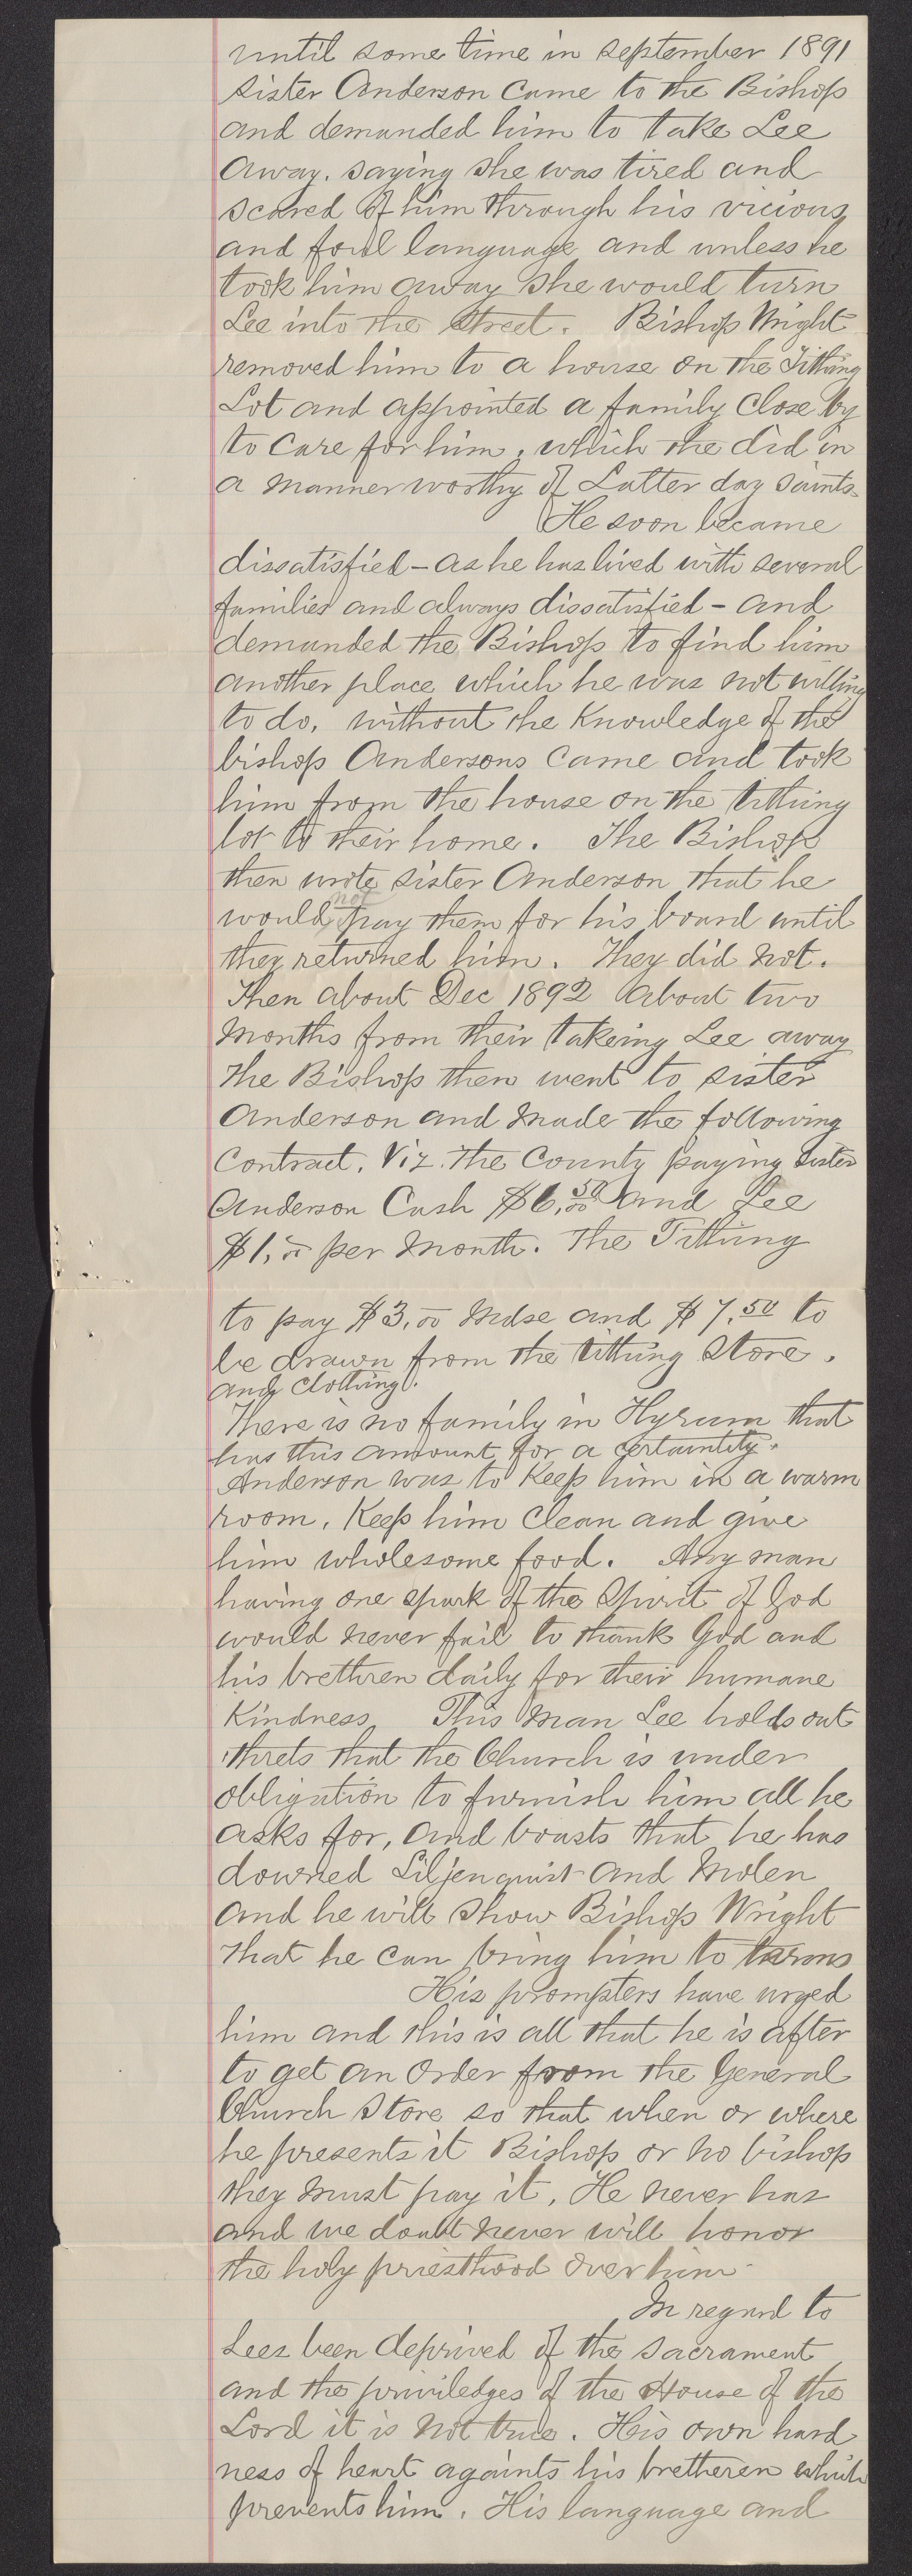 until some time in september 1891
sister Anderson came to the Bishop
and demanded him to take Lee
away. saying she was tired and
scared of him through his vicious
and foul language and unless he
took him away she would turn
Lee into the street. Bishop Wright
removed him to a house on the Tithing
Lot and appointed a family close by
to care for him, which the did in
a manner worthy of Latter day saints.
He soon became
dissatisfied - as he has lived with several
families and always dissatisfied - and
demanded the Bishop to find him
another place which he was not willing
to do. without the knowledge of the
bishop Andersons came and took
him from the house on the tithing
lot to their home. The Bishop
then wrote sister Anderson that he
would not pay them for his board until
they returned him. They did not.
Then about Dec 1892 about two
months from their takeing Lee away
the Bishop then went to sister
Anderson and made the following
contract. Viz. the County paying sister
Anderson Cash $6.50 and Lee
$1.00 per month. The Tithing
to pay $3.00 mdse and $7.50 to
be drawn from the tithing store.
and clothing.
There is no family in Hyrum that
has this amount for a certaintity.
Anderson was to keep him in a warm
room, keep him clean and give
him wholesome food. Any man
having one spark of the Spirit of God
would never fail to thank God and
his brethren daily for their humane
kindness This man Lee holds out
threts that the Church is under
obligation to furnish him all he
asks for, and boasts that he has
downed Liljenquist and Molen
and he will show Bishop Wright
that he can bring him to terms
His prompters have urged
him and this is all that he is after
to get an order from the General
Church Store so that when or where
he presents it Bishop or no bishop
they must pay it. He never has
and we doubt never will honor
the holy priesthood over him
In regard to
Lees been deprived of the sacrament
and the priviledges of the House of the
Lord it is not true. His own hard
ness of heart againts his bretheren which
prevents him. His language and